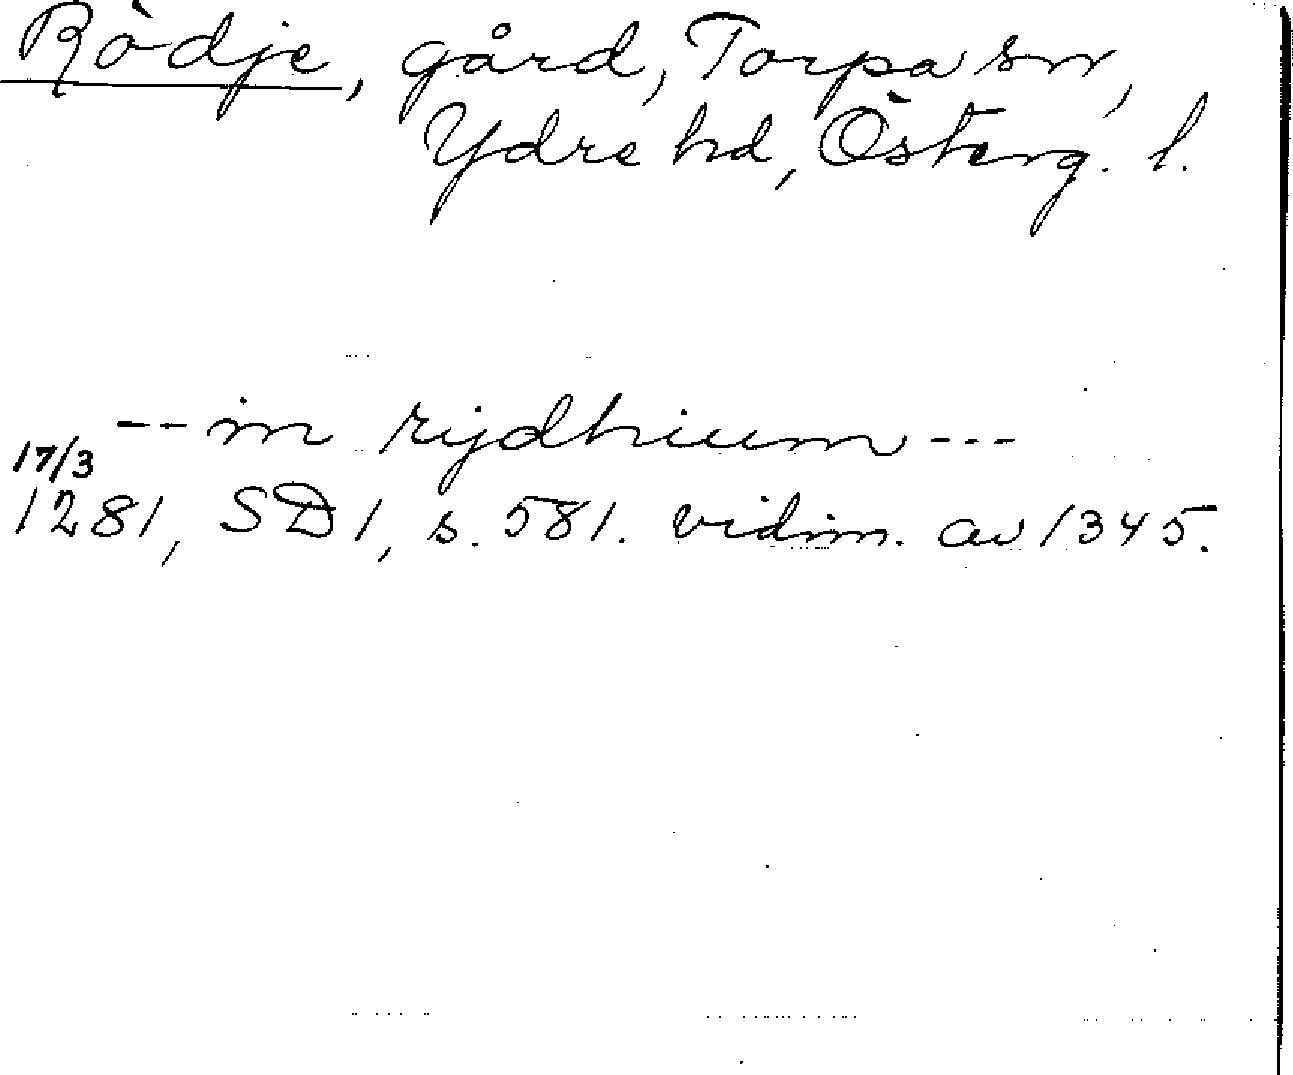 Rödje, gård, Torpa sn,
Ydre hd, Österg. l.
-- in rijdhium ---
17/3
1281, SD 1, s. 581. vidim. av 1345.